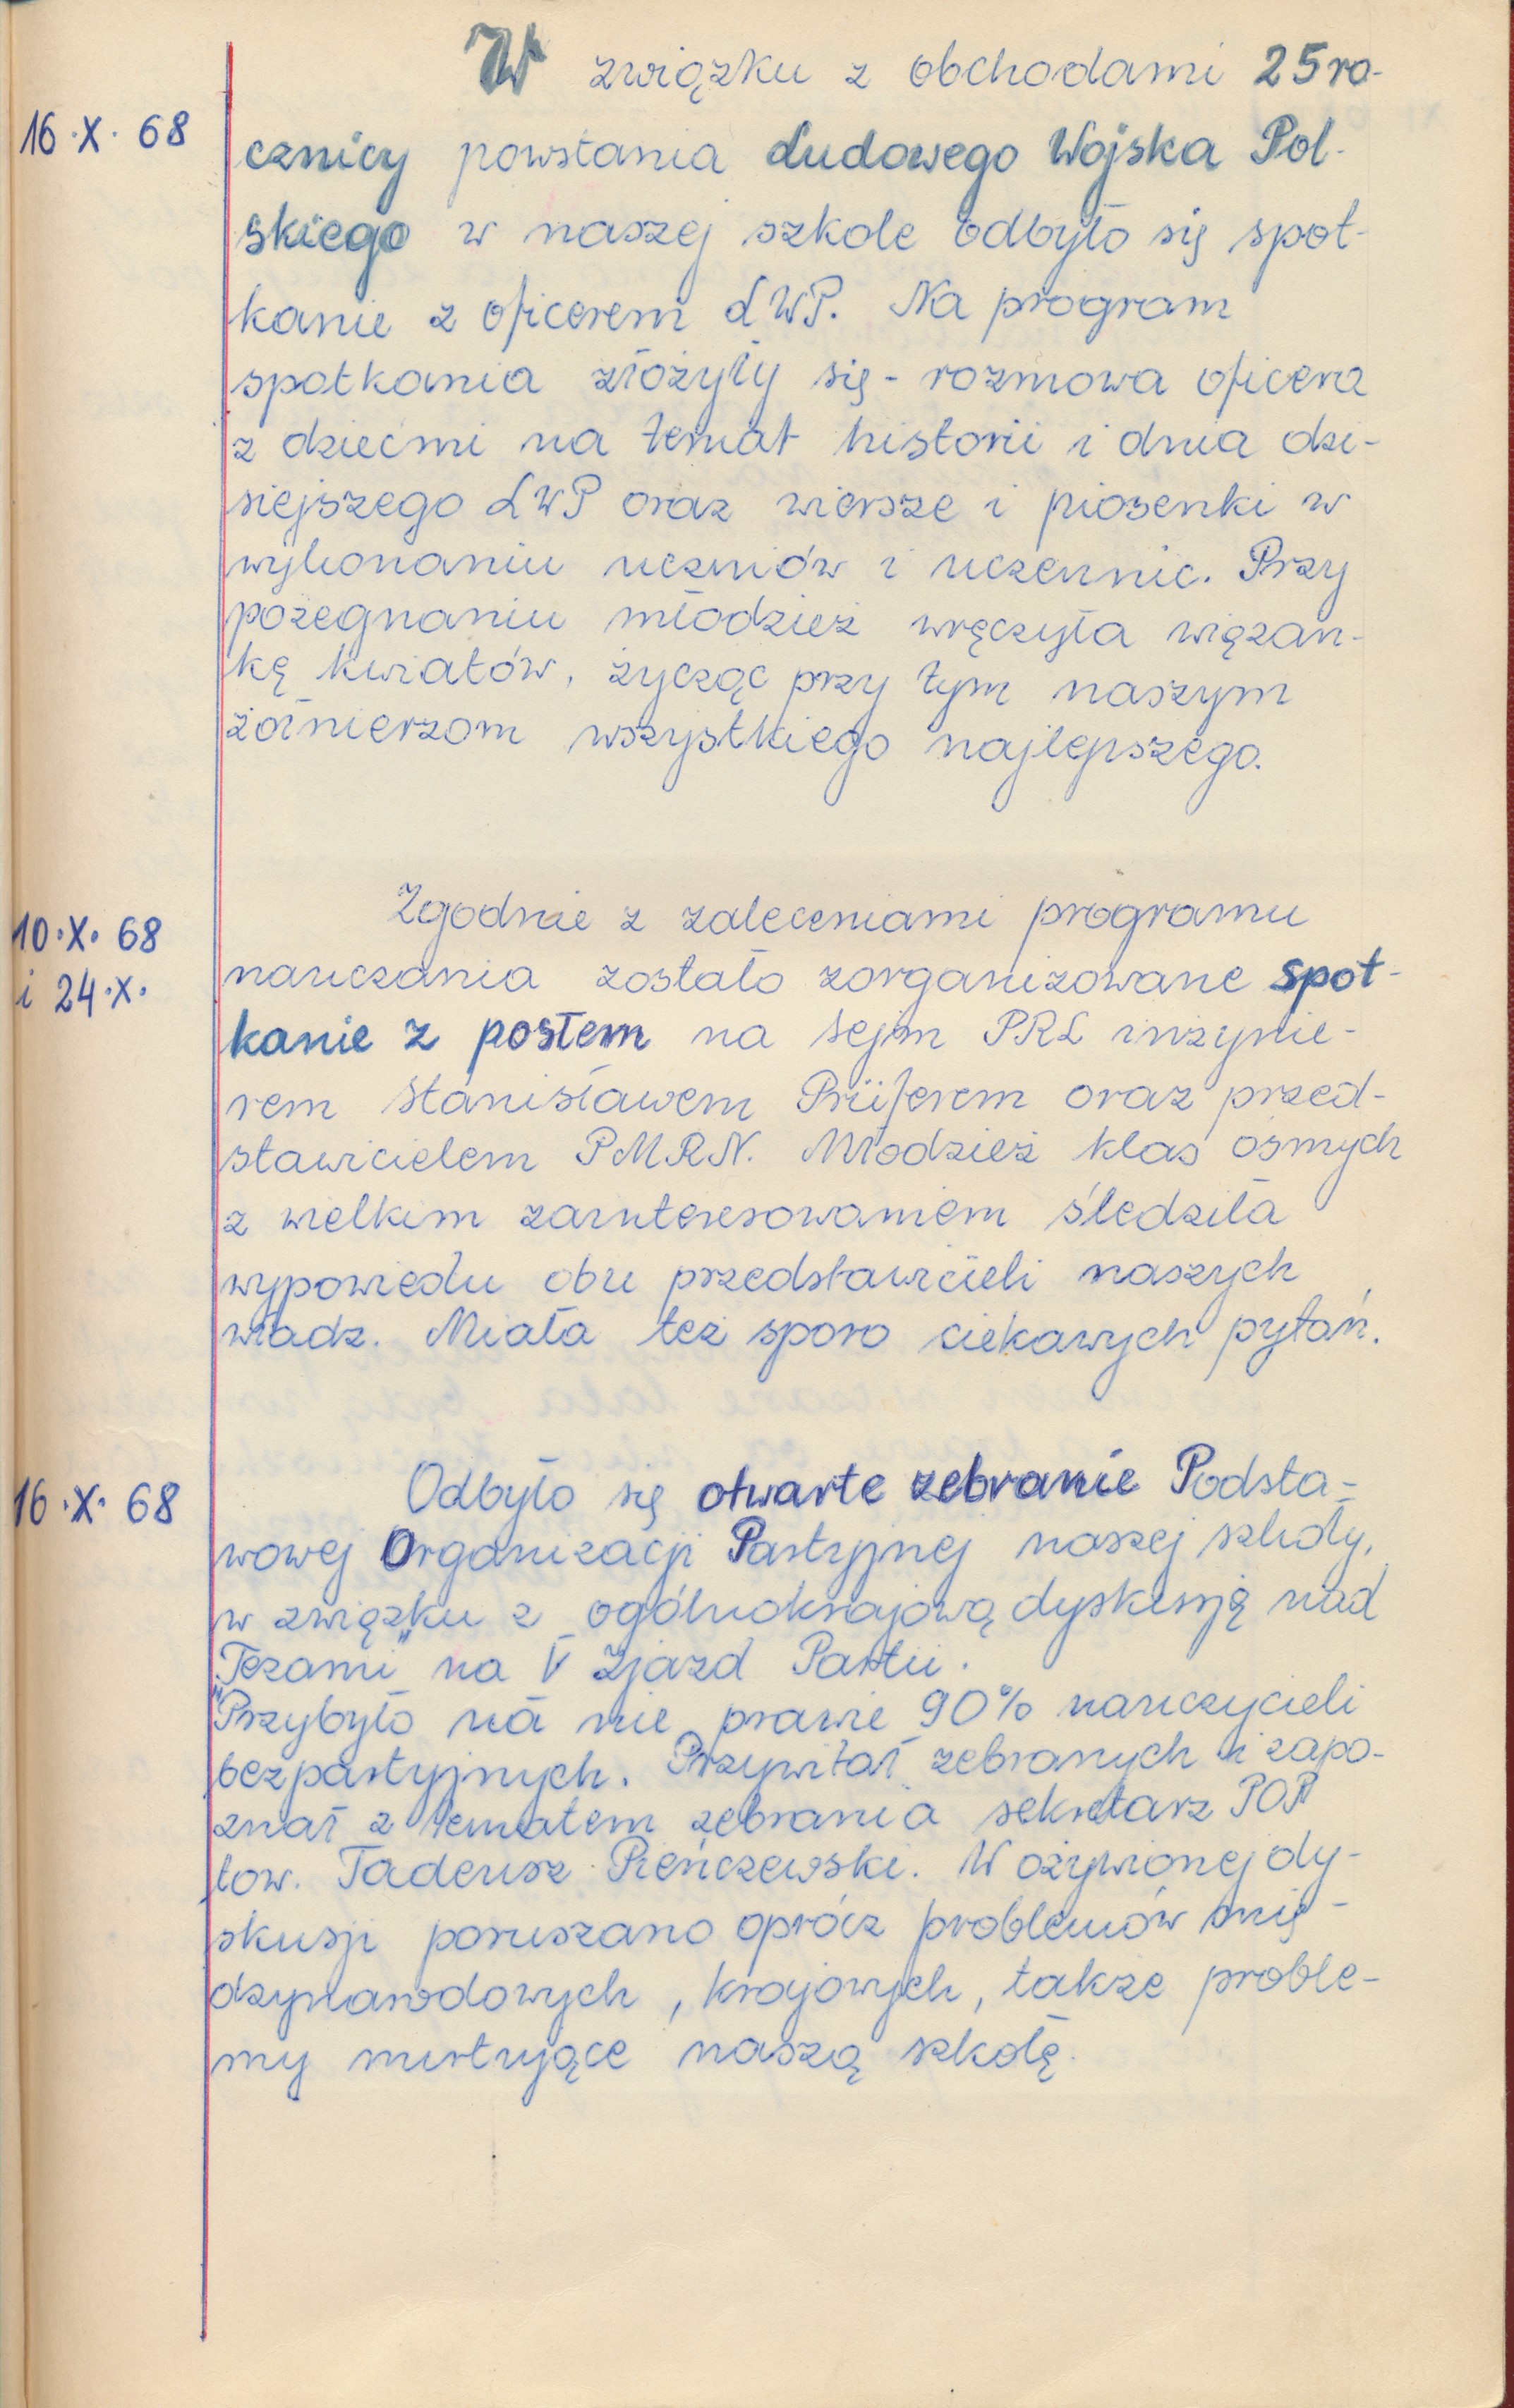 W związku z obchodami 25 ro-
16.X.68
cznicy powstania Ludowego Wojska Pol-
skiego w naszej szkole odbyło się spot-
kanie z oficerem LWP. Na program
spotkania złożyły się - rozmowa oficera
z dziećmi na temat historii i dnia dzi-
siejszego LWP oraz wiersze i piosenki w
wykonaniu uczniów i uczennic. Przy
pożegnaniu młodzież wręczyła wiązan-
kę kwiatów, życząc przy tym naszym
żołnierzom wszystkiego najlepszego.
Zgodnie z zaleceniami programu
10.X.68
nauczania zostało zorganizowane spot-
i 24.X.
kanie z posłem na sejm PRL inżynie-
rem Stanisławem Prüferem oraz przed-
stawicielem PMRN. Młodzież klas ósmych
z wielkim zainteresowaniem śledziła
wypowiedzi obu przedstawicieli naszych
władz. Miała też sporo ciekawych pytań.
16.X.68
Odbyło się otwarte zebranie Podsta-
wowej Organizacji Partyjnej naszej szkoły,
w związku z ogólnokrajową dyskusją nad
„Tezami" na V Zjazd Partii.
Przybyło na nie prawie 90% nauczycieli
bezpartyjnych. Przywitał zebranych i zapo-
znał z tematem zebrania sekretarz POP
tow. Tadeusz Pieńczewski. W ożywionej dy-
skusji poruszano oprócz problemów mię-
dzynarodowych, krajowych, także proble-
my nurtujące naszą szkołę.